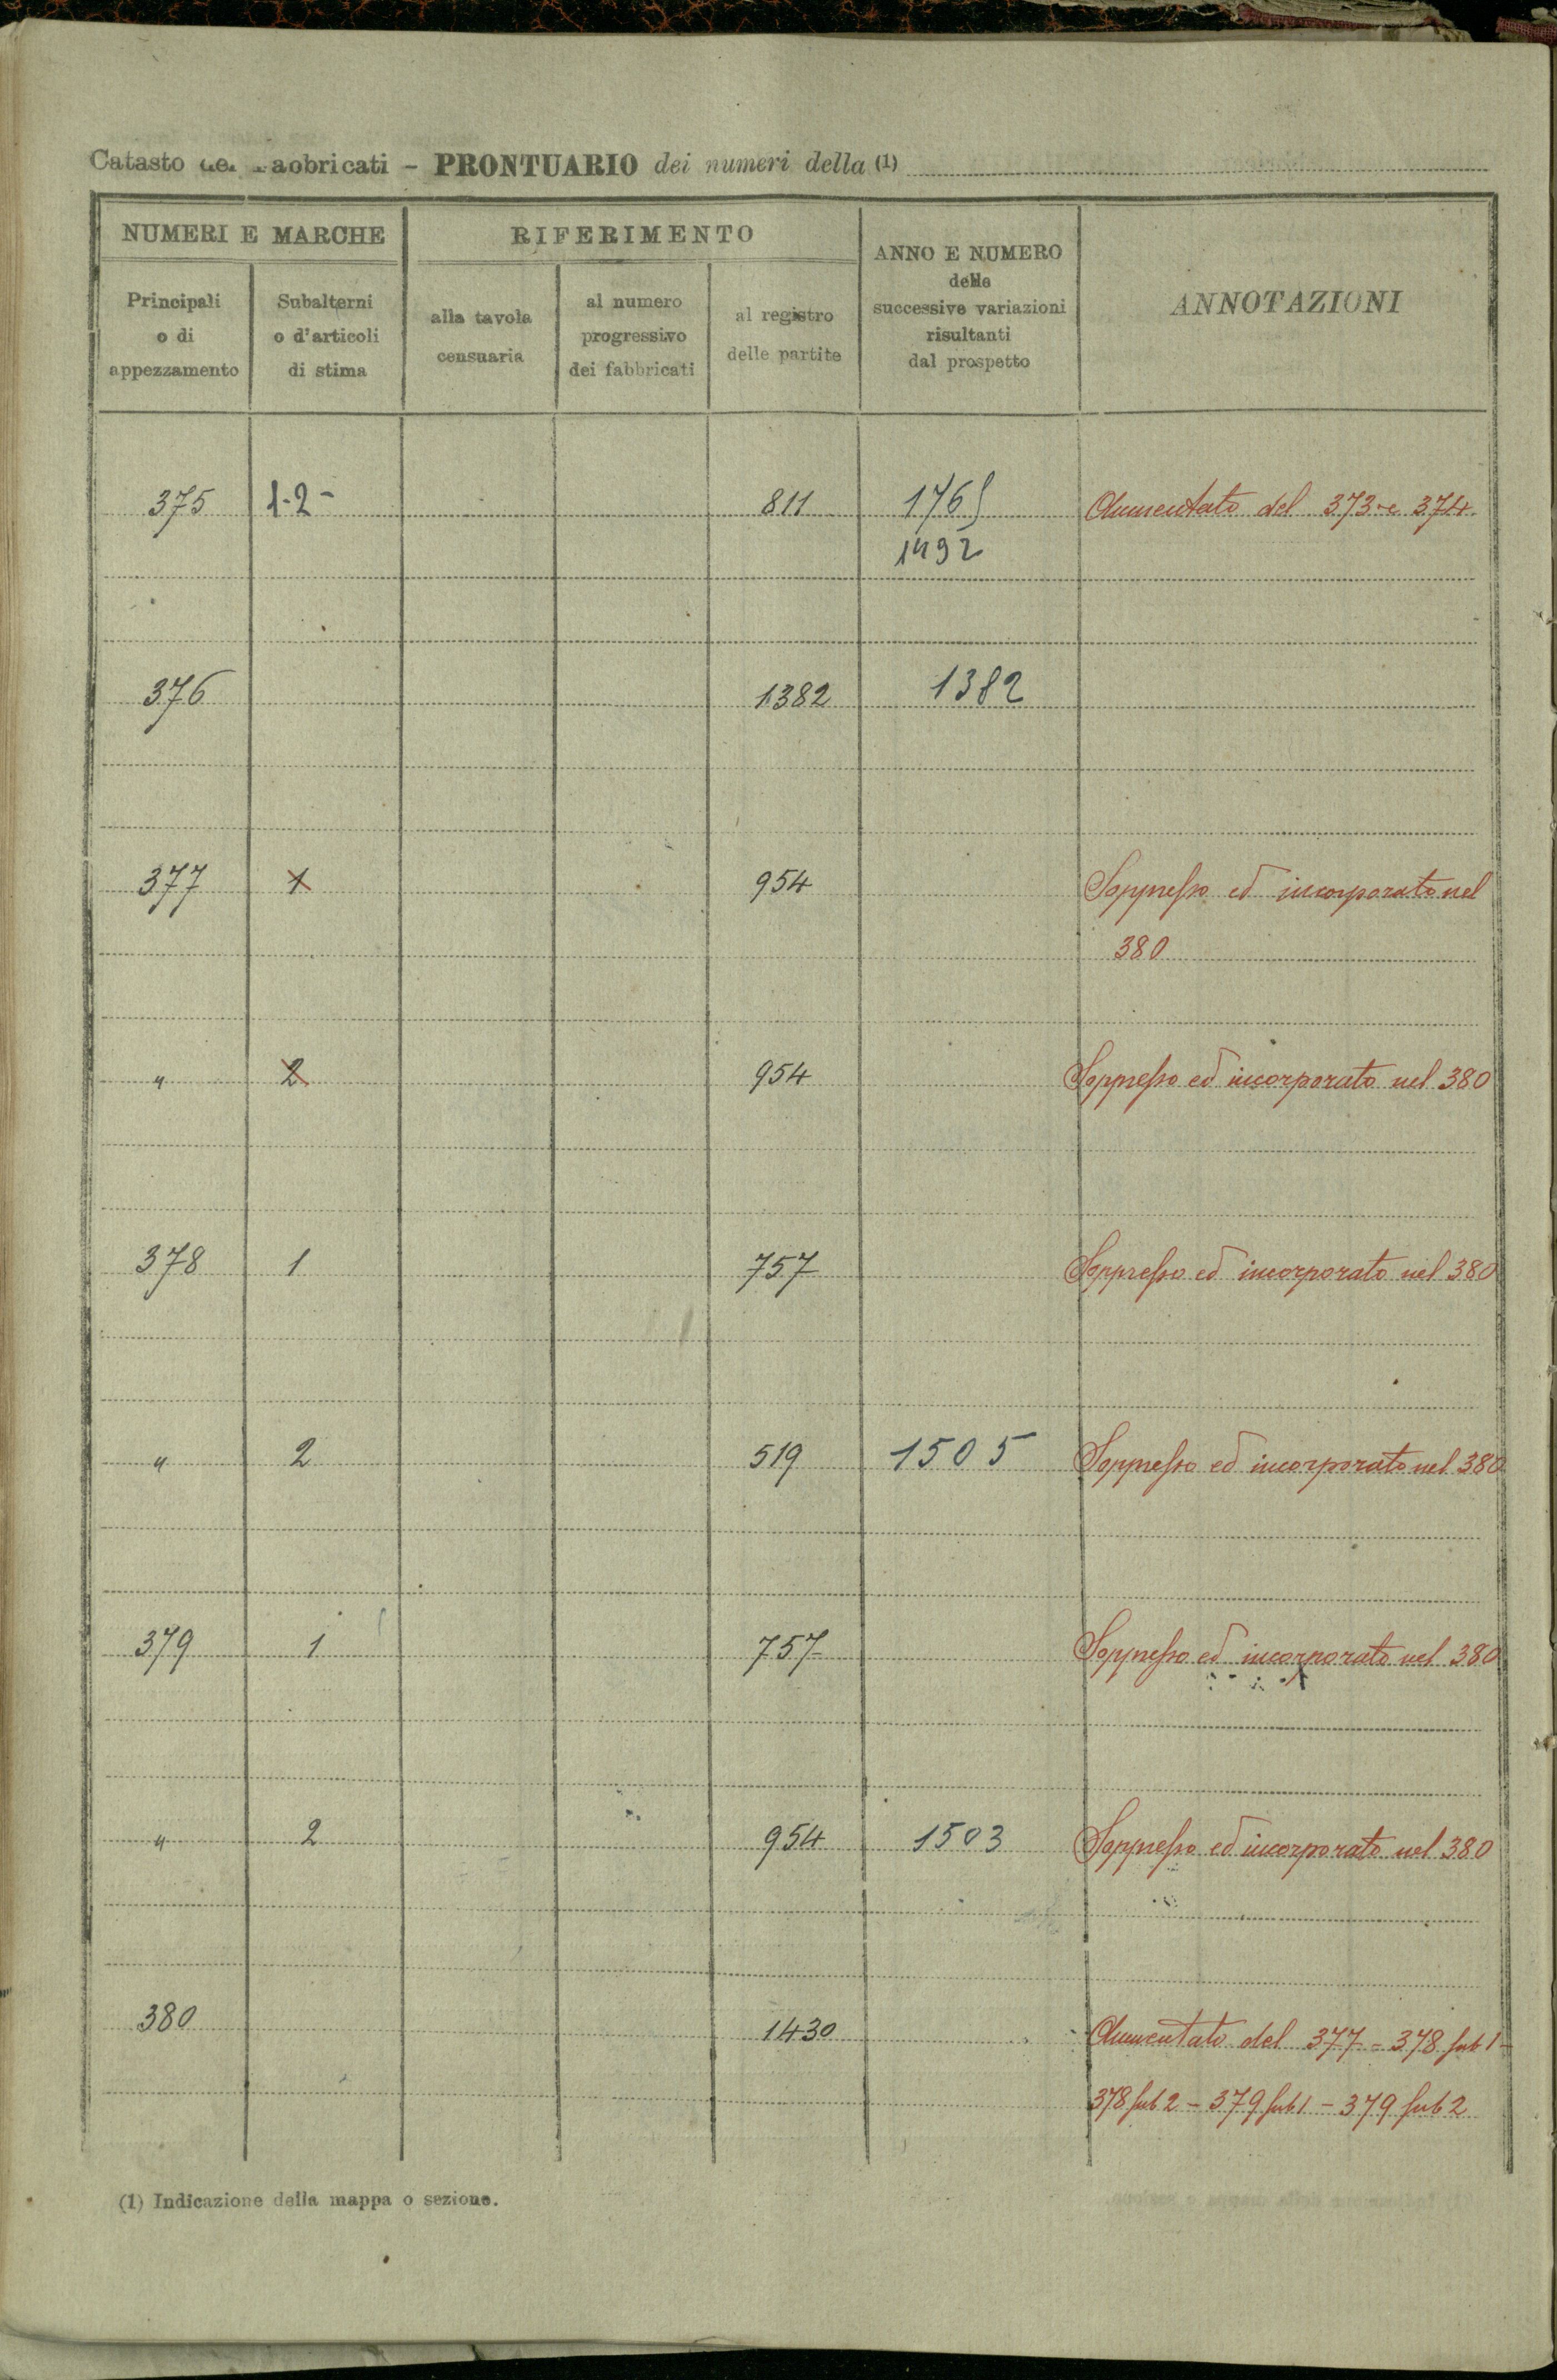 Catasto dei Fabbricati – PRONTUARIO dei numeri della (1)
NUMERI E MARCHE
RIFERIMENTO
ANNO E NUMERO
delle
successive variazioni
risultanti
dal prospetto
ANNOTAZIONI
Principali
o di
appezzamento
Subalterni
o d'articoli
di stima
alla tavola
censuaria
al numero
progressivo
dei fabbricati
al registro
delle partite
375 1-2- 811 Aumentato del 373 e 374
1492
376 1382 1382
377 1 954 Soppresso ed incorporato nel
380
" 2 954 Soppresso ed incorporato nel 380
378 1 757 Soppresso ed incorporato nel 380
" 2 519 1505 Soppresso ed incorporato nel 380
379 1 757 Soppresso ed incorporato nel 380
" 2 954 1503 Soppresso ed incorporato nel 380
380 1430 Aumentato del 377 - 378 sub 1-
378 sub 2 - 379 sub 1 - 379 sub 2
(1) Indicazione della mappa o sezione.